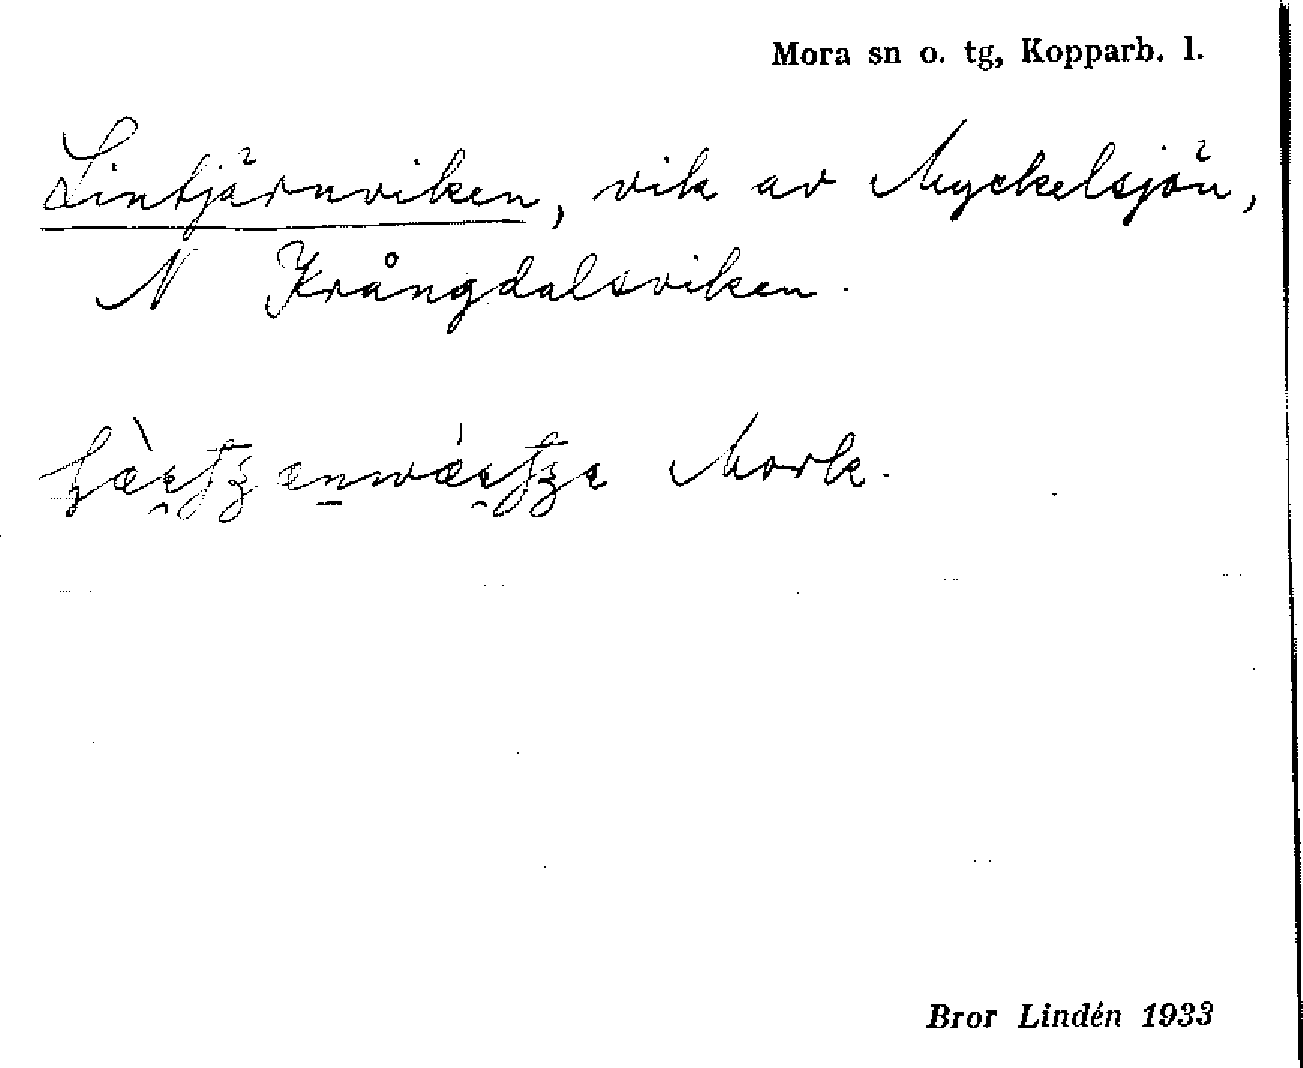 Mora sn o. tg, Kopparb. l.
Lintjärnviken, vik av Myckelsjön,
N Krångdalsviken.
Mork.
Bror Lindén 1933